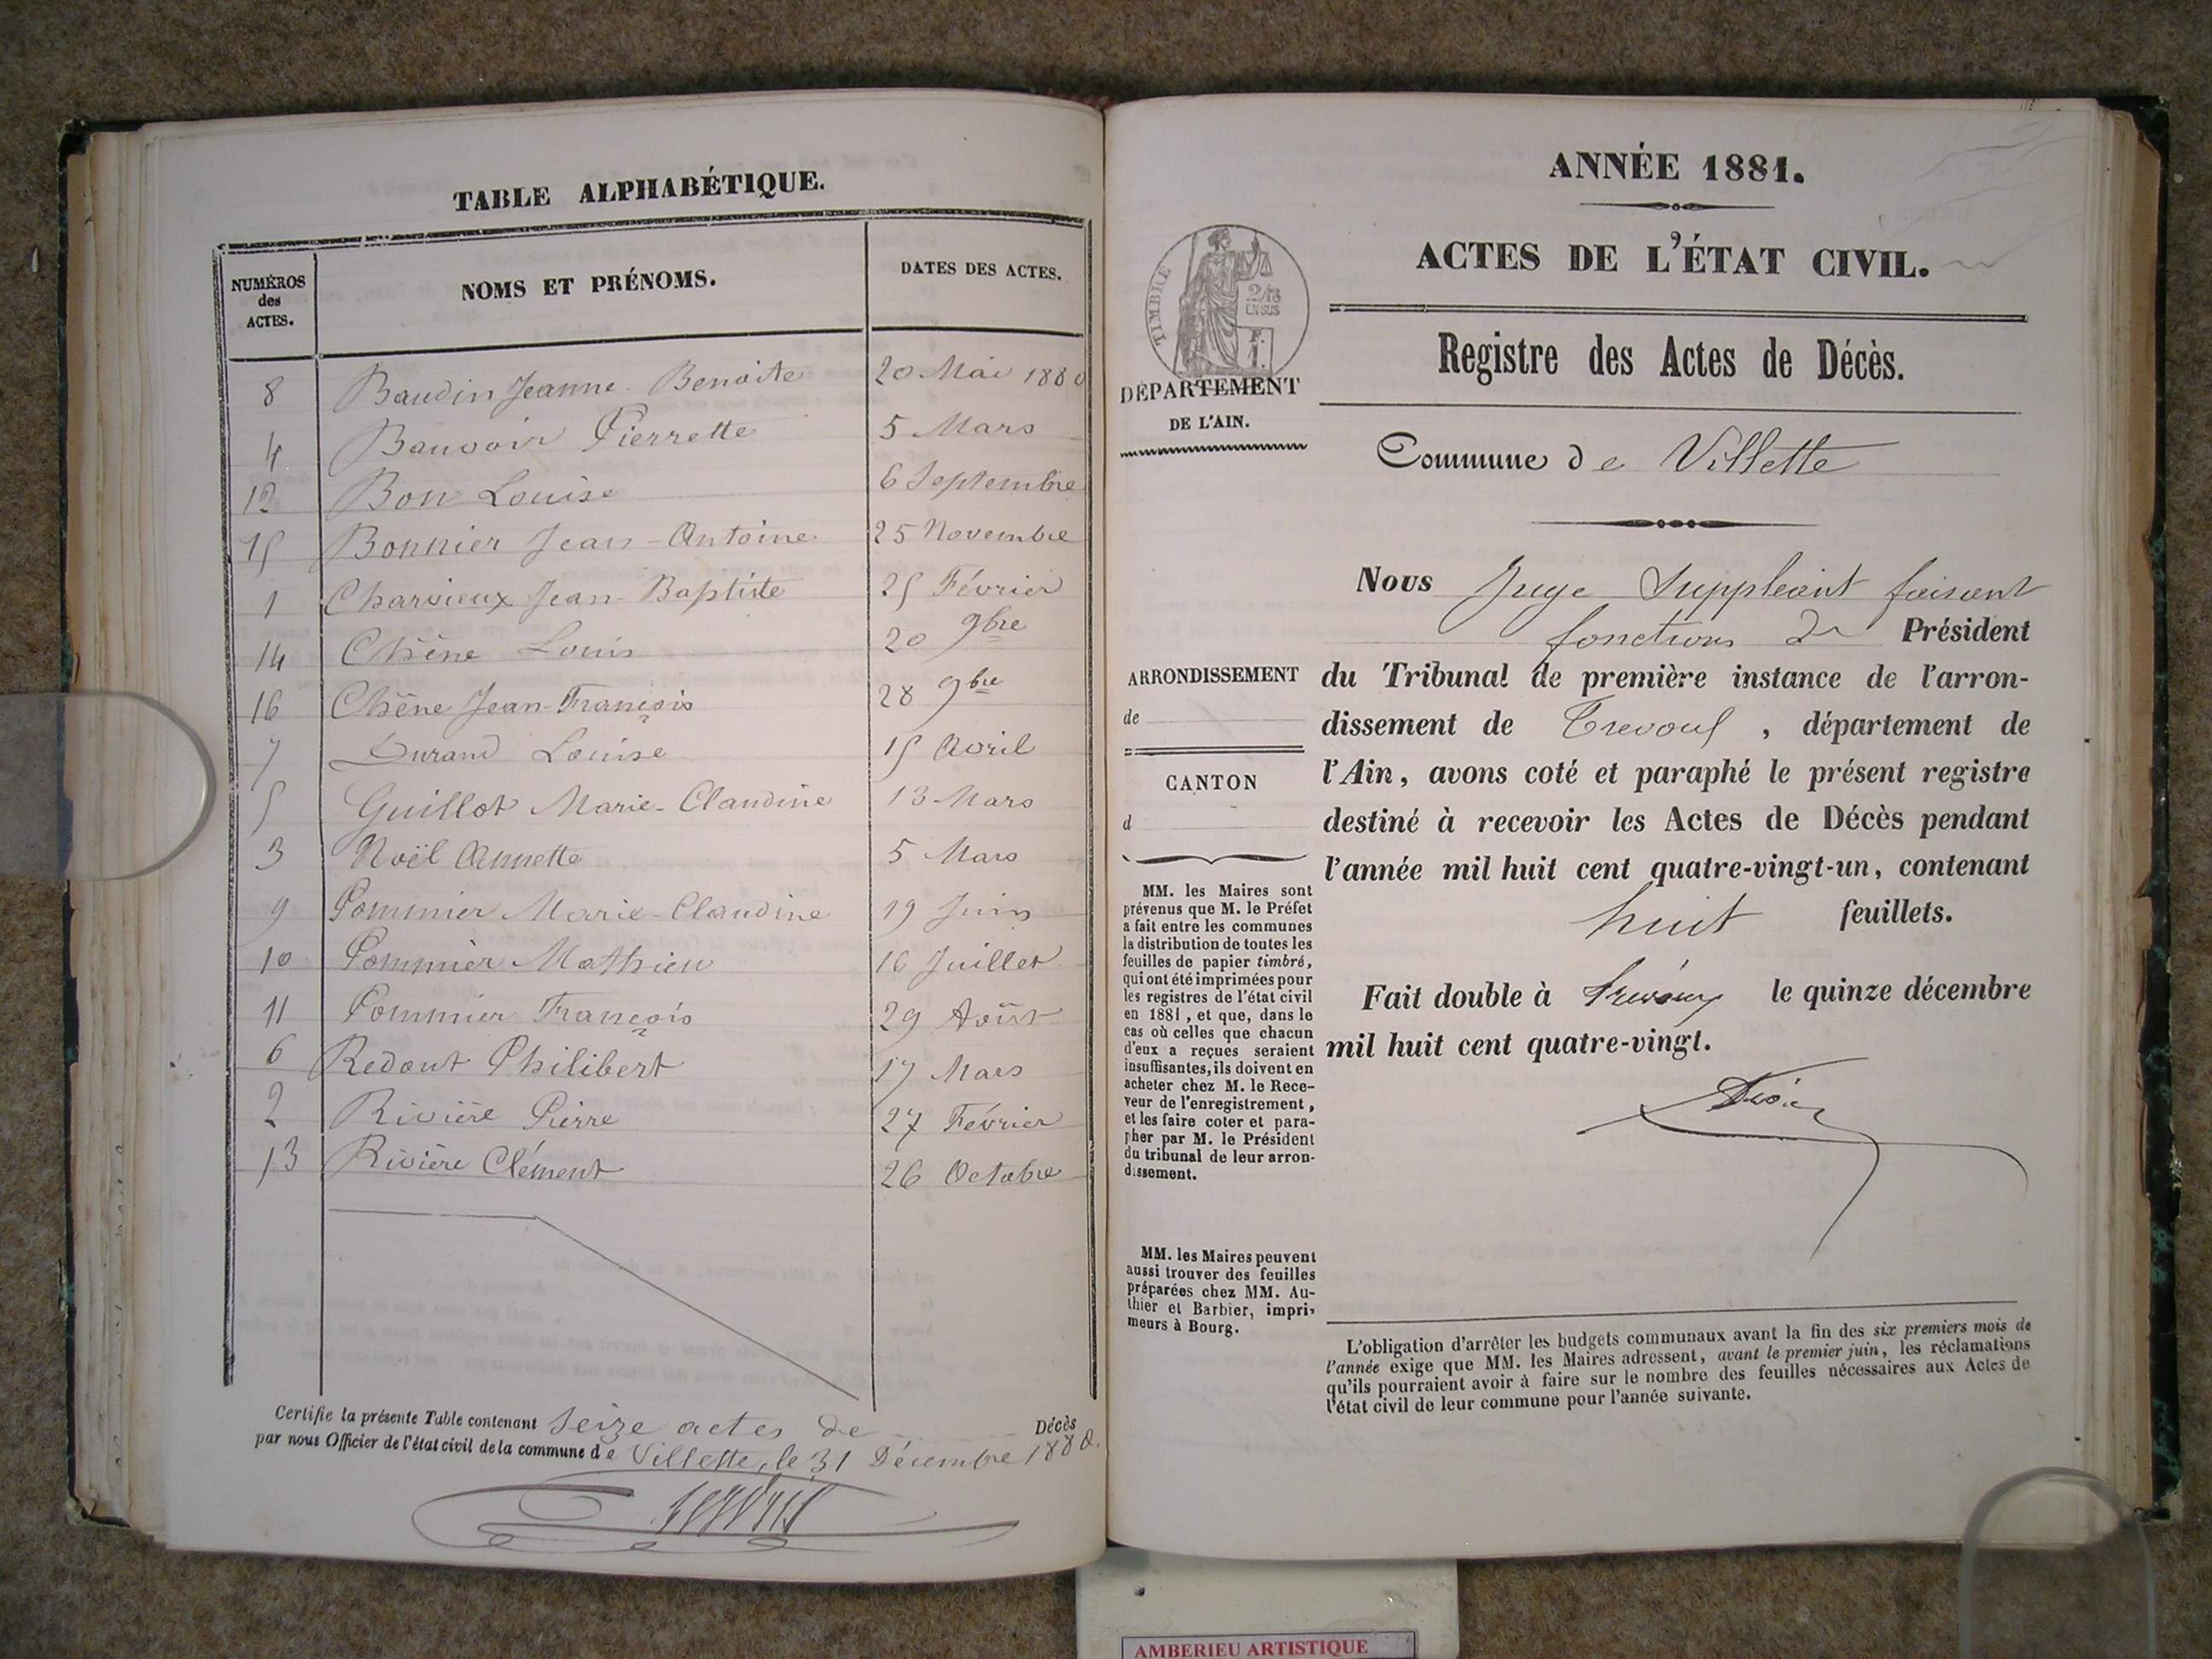 TABLE ALPHABÉTIQUE.
NUMÉROS des ACTES. NOMS ET PRÉNOMS. DATES DES ACTES.
8 Baudin Jeanne-Benoite 20 Mai 1880
4 Bauvoir Pierrette 5 Mars
12 Bon Louise 6 Septembre
15 Bonnier Jean-Antoine 25 Novembre
1 Charvieux Jean-Baptiste 25 Février
14 Chêne Louis 20 9bre
16 Chêne Jean-François 28 9bre
7 Durand Louise 15 Avril
5 Guillot Marie-Claudine 13 Mars
3 Noël Annette 5 Mars
9 Pommier Marie-Claudine 19 Juin
10 Pommier Mathieu 16 Juillet
11 Pommier François 29 Août
6 Redout Philibert 17 Mars
2 Rivière Pierre 27 Février
13 Rivière Clément 26 Octobre
Certifie la présente Table contenant Seize actes de Décès
par nous Officier de l'état civil de la commune de Villette, le 31 Décembre 1880.
ANNÉE 1881.
ACTES DE L'ÉTAT CIVIL.
Registre des Actes de Décès.
TIMBRE
2/10
EN SUS
DÉPARTEMENT
DE L'AIN.
Commune de Villette
Nous Juge Suppléant faisant
fonctions de Président
ARRONDISSEMENT
de
CANTON
d
du Tribunal de première instance de l'arron-
dissement de Trevoux, département de
l'Ain, avons coté et paraphé le présent registre
destiné à recevoir les Actes de Décès pendant
l'année mil huit cent quatre-vingt-un, contenant
huit feuillets.
Fait double à Trévoux le quinze décembre
mil huit cent quatre-vingt.
MM. les Maires sont
prévenus que M. le Préfet
a fait entre les communes
la distribution de toutes les
feuilles de papier timbré,
qui ont été imprimées pour
les registres de l'état civil
en 1881, et que, dans le
cas où celles que chacun
d'eux a reçues seraient
insuffisantes, ils doivent en
acheter chez M. le Rece-
veur de l'enregistrement,
et les faire coter et para-
pher par M. le Président
du tribunal de leur arron-
dissement.
MM. les Maires peuvent
aussi trouver des feuilles
préparées chez MM. Au-
thier et Barbier, impri-
meurs à Bourg.
L'obligation d'arrêter les budgets communaux avant la fin des six premiers mois de
l'année exige que MM. les Maires adressent, avant le premier juin, les réclamations
qu'ils pourraient avoir à faire sur le nombre des feuilles nécessaires aux Actes de
l'état civil de leur commune pour l'année suivante.
AMBERIEU ARTISTIQUE